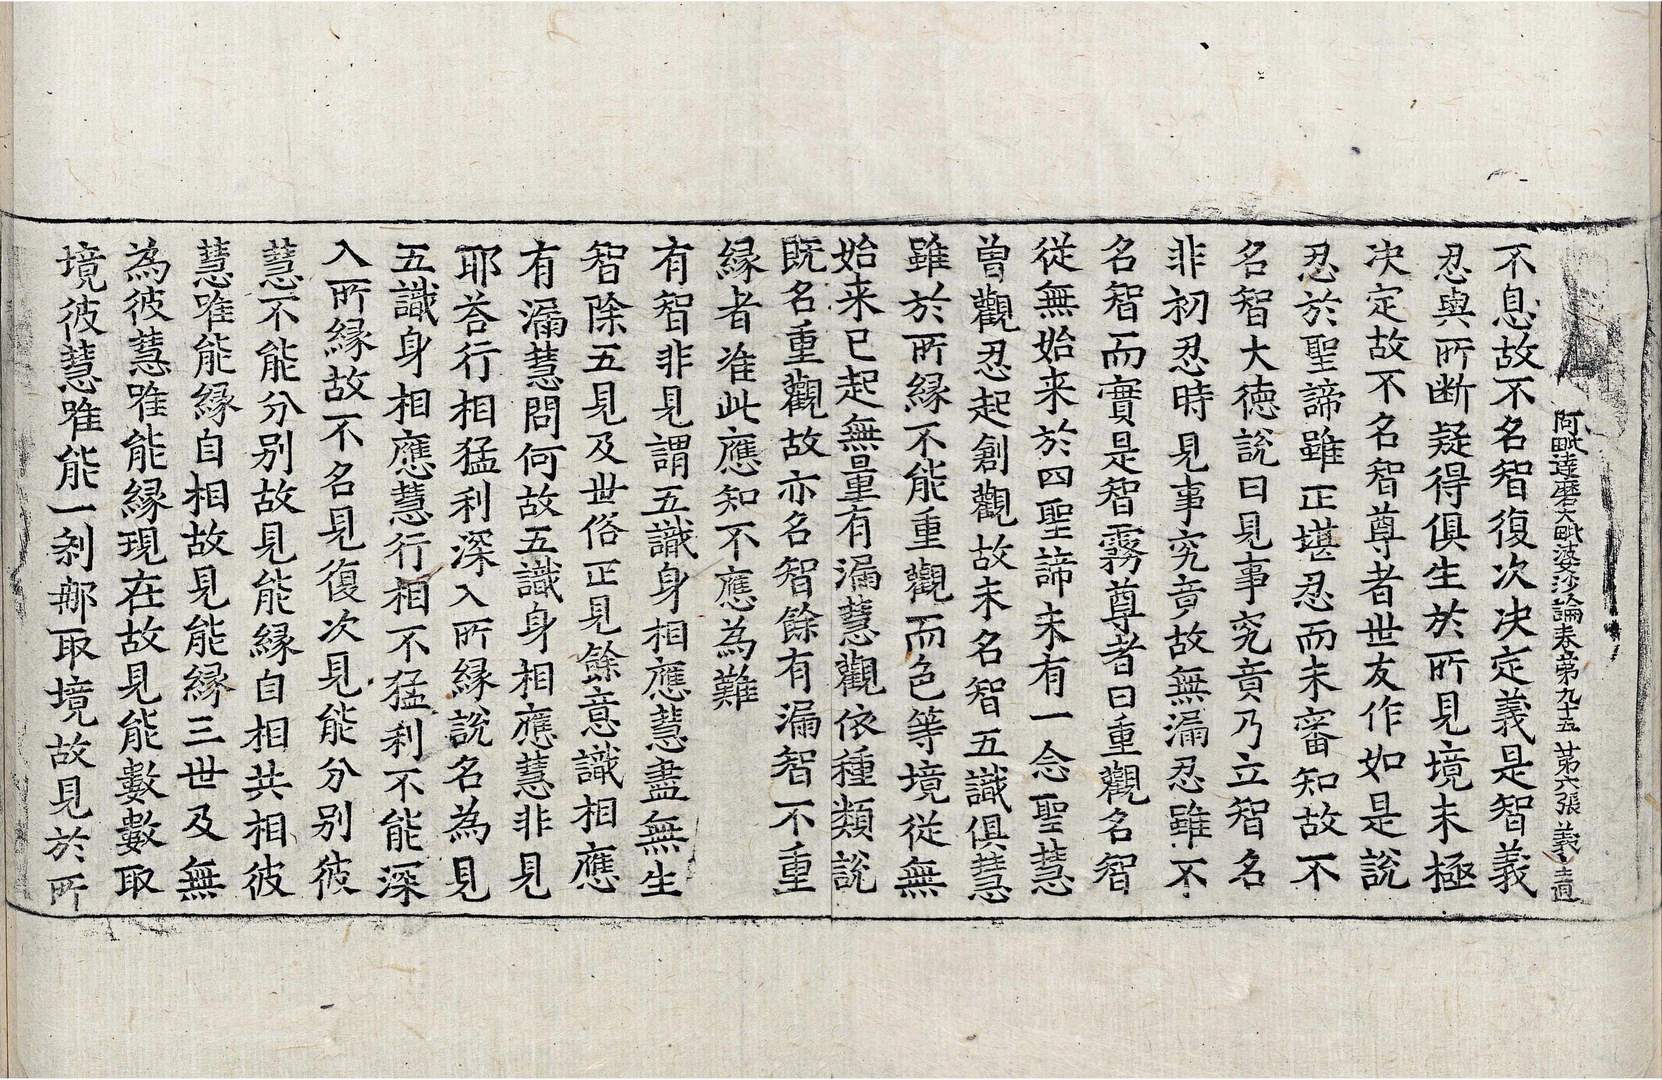 阿毗達磨大毗婆沙論卷第九十五 第六張 義
不息故不名智復次决定義是智義
忍與所断疑得俱生於所見境未極
决定故不名智尊者世友作如是說
忍於聖諦雖正堪忍而未審知故不
名智大德說曰見事究竟乃立智名
非初忍時見事究竟故無漏忍雖不
名智而實是智霧尊者曰重觀名智
從無始来於四聖諦未有一念聖慧
曽觀忍起創觀故未名智五識俱慧
雖於所縁不能重觀而色等境從無
始来已起無量有漏慧觀依種類說
既名重觀故亦名智餘有漏智不重
縁者准此應知不應為難
有智非見謂五識身相應慧盡無生
智除五見及世俗正見餘意識相應
有漏慧問何故五識身相應慧非見
耶荅行相猛利深入所縁說名為見
五識身相應慧行相不猛利不能深
入所縁故不名見復次見能分别彼
慧不能分别故見能縁自相共相彼
慧唯能縁自相故見能縁三世及無
為彼慧唯能縁現在故見能數數取
境彼慧唯能一剎那取境故見於所